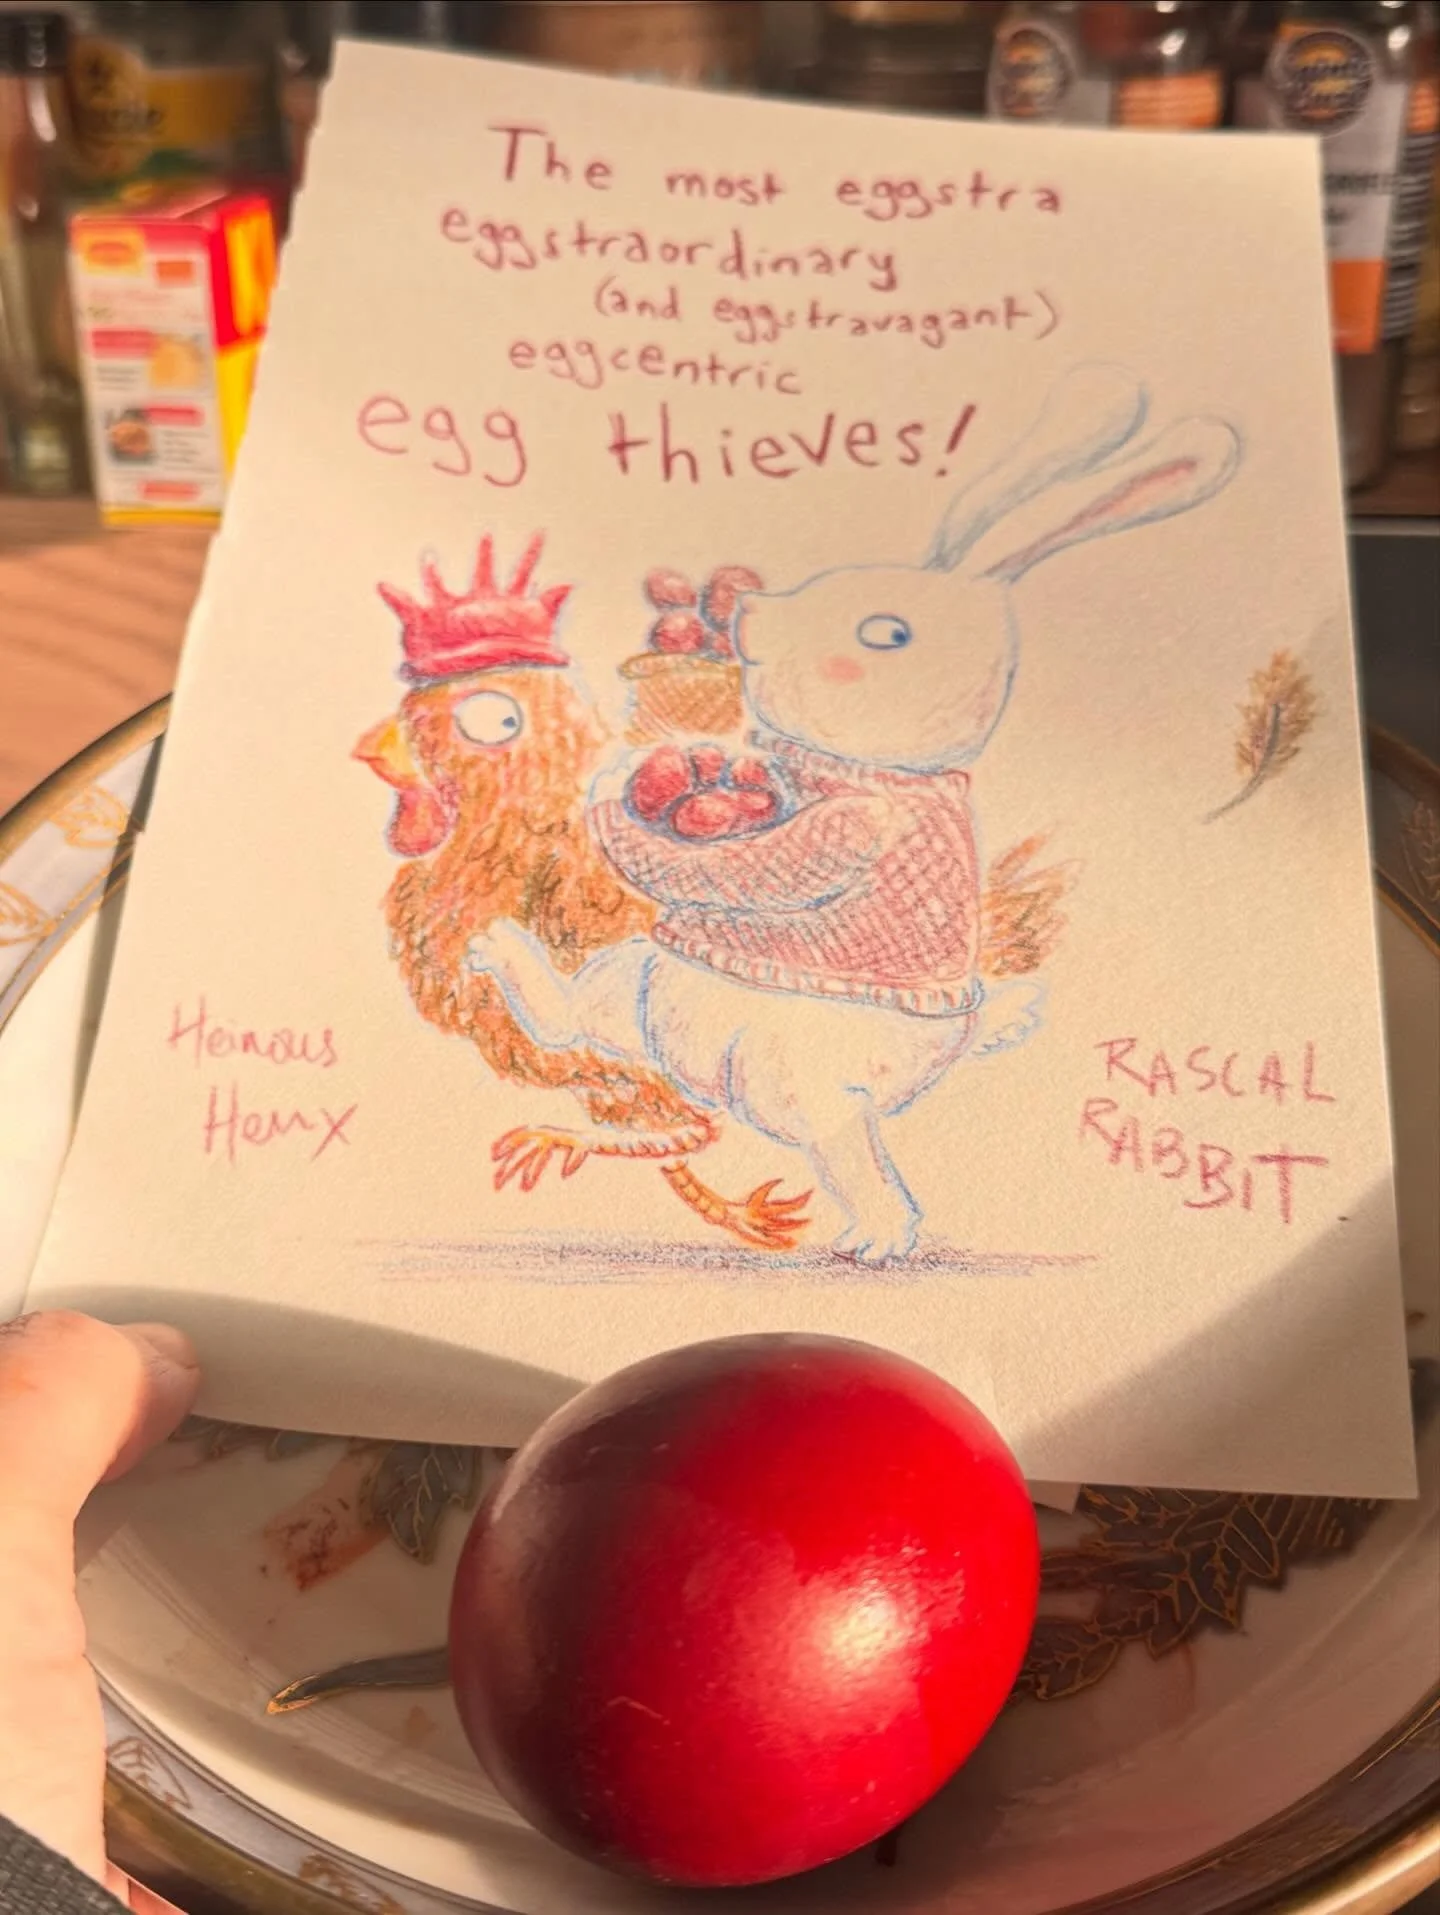 The most eggstra
eggstraordinary
(and eggstravagant)
eggcentric
egg thieves!
Heinous
Henry
RASCAL
RABBIT